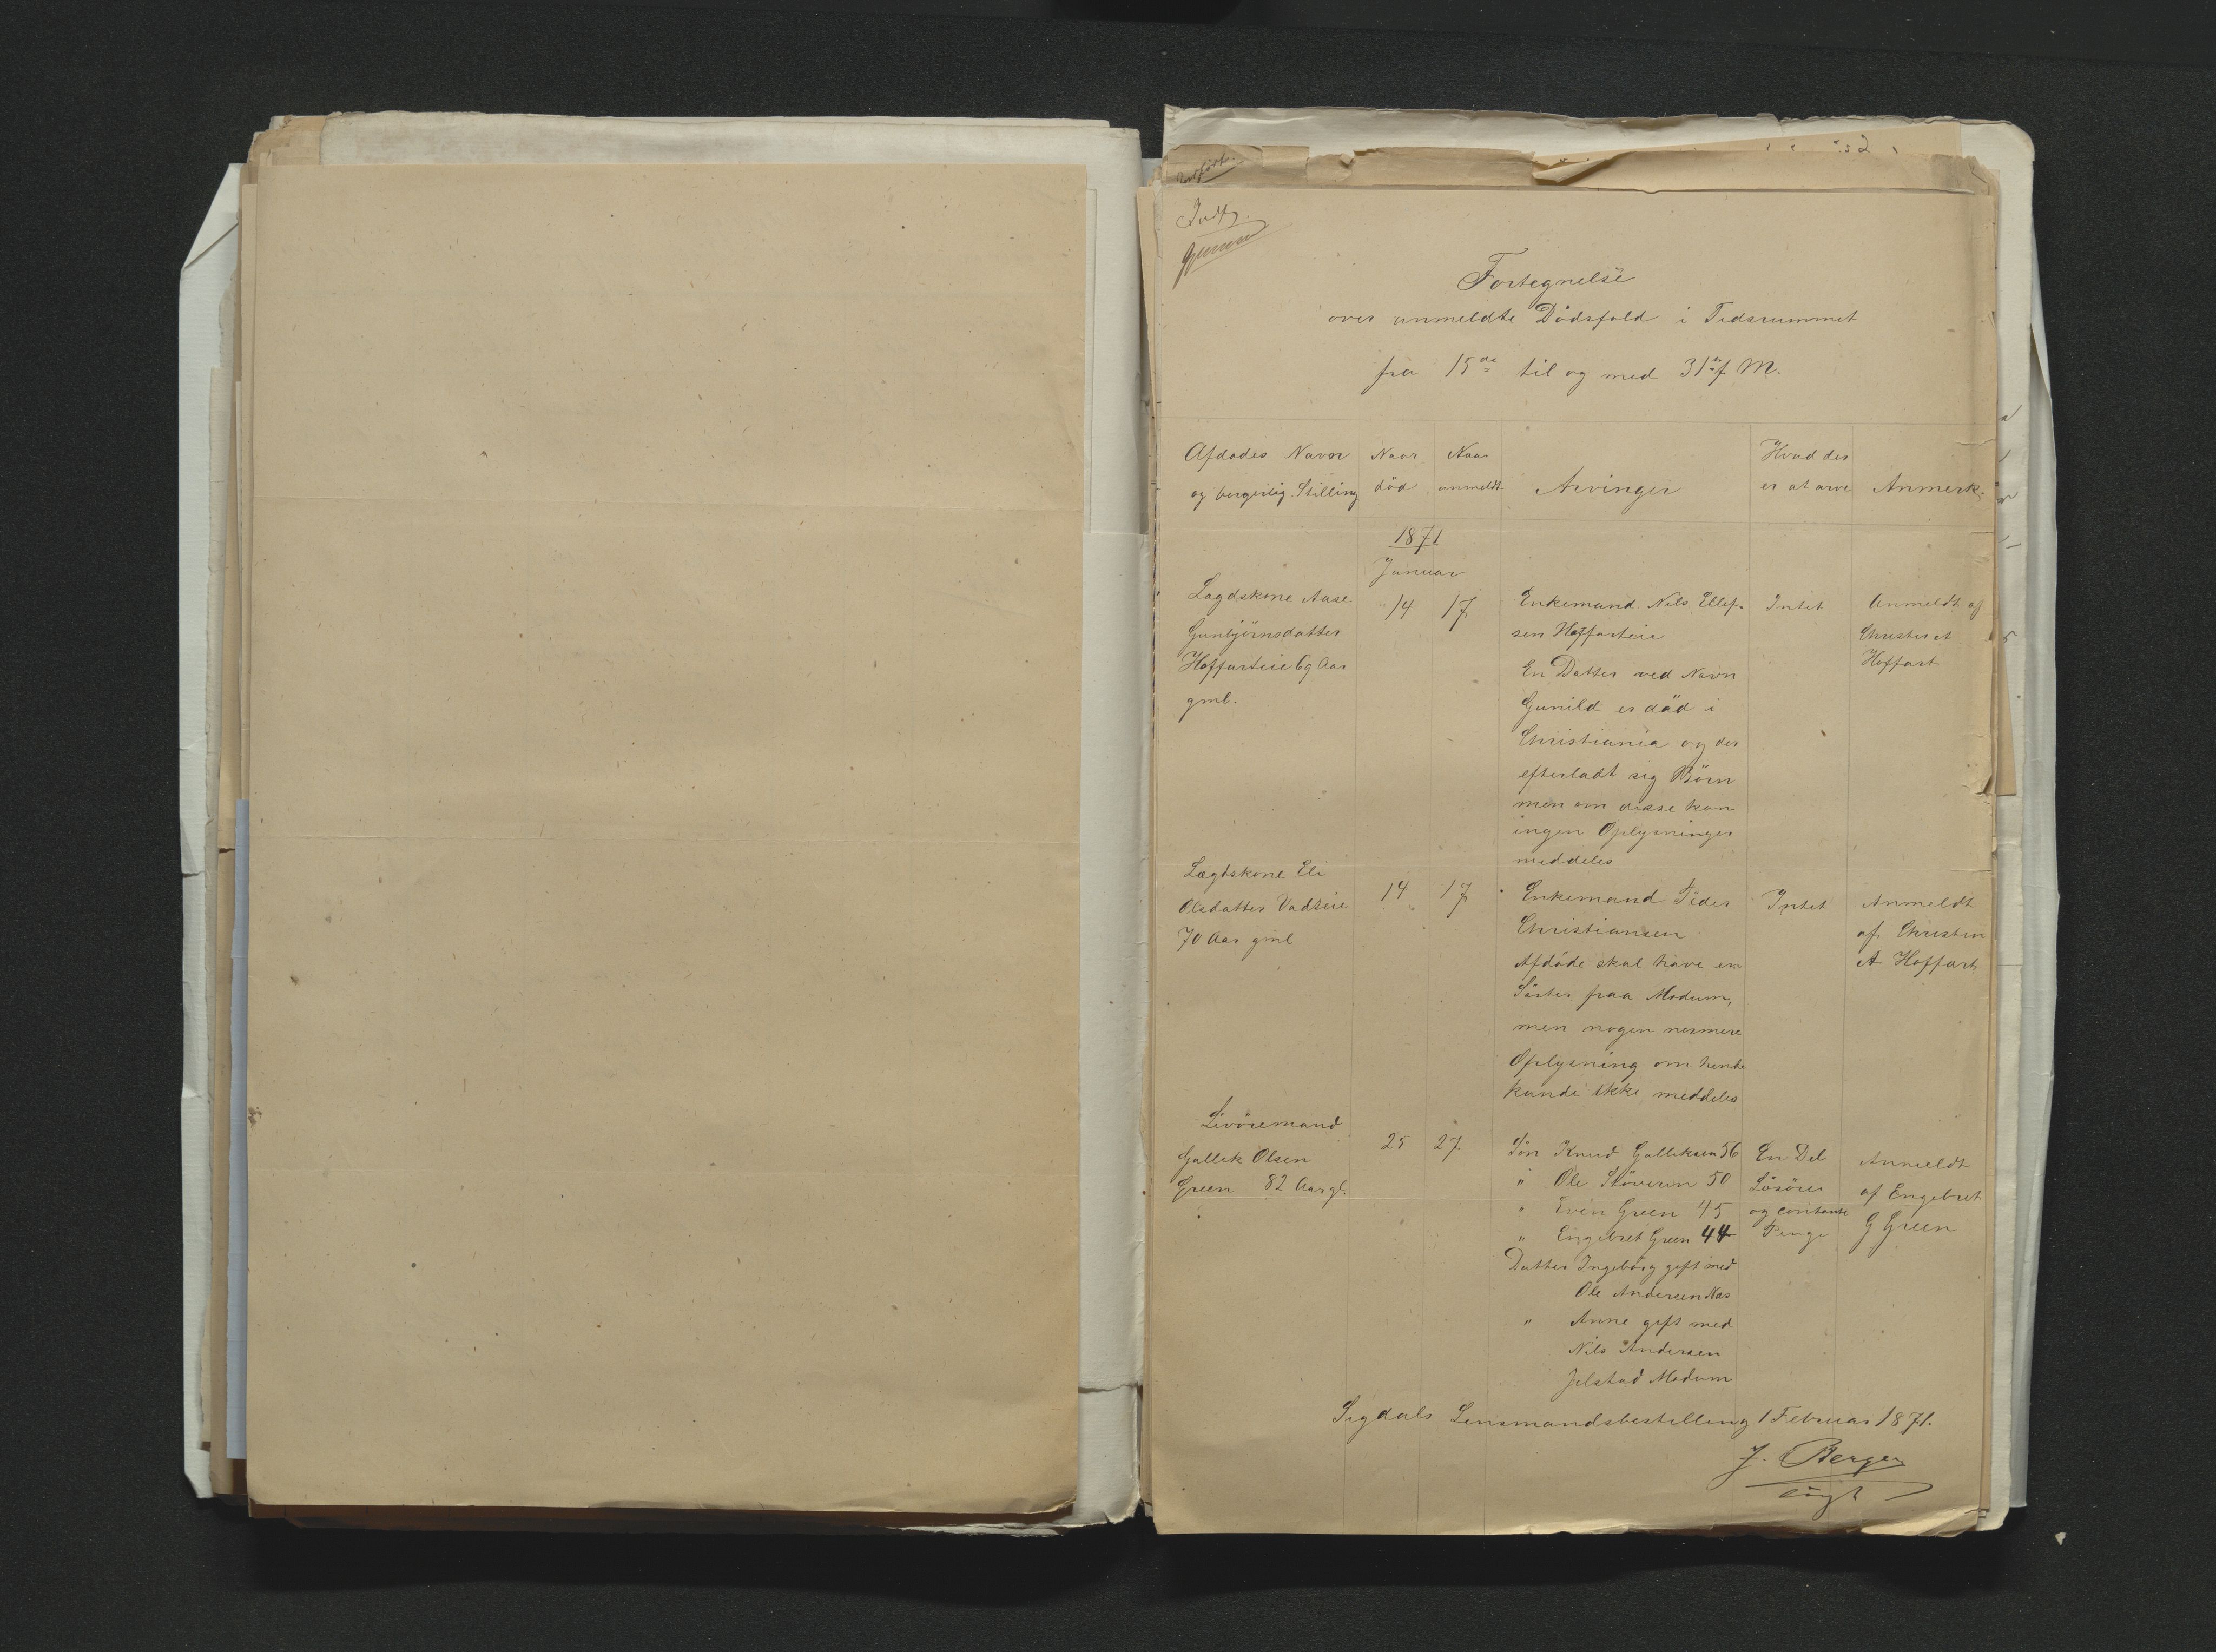 Indført.
Indf.
Fortegnelse
over anmeldte Dødsfald i Tidsrummet
fra 15de til og med 31te f. M.
Afdødes Navn
og borgerlig Stilling
Naar
död
Naar
anmeldt
Arvinger
Hvad der
er at arve
Anmerk.
1871
Januar
Lægdskone Aase
Gunbjörnsdatter
Hoffarteie 69 Aar
gml.
14
17
Enkemand Nils Ellef-
sen Hoffarteie
En Datter ved Navn
Gunild er död i
Christiania og der
efterladt sig Börn
men om disse kan
ingen Oplysninger
meddeles
Intet
Anmeldt af
Christen A
Hoffart
Lægdskone Eli
Olsdatter Vadseie
70 Aar gml
14
17
Enkemand Peder
Christiansen
Afdöde skal have en
Söster paa Modum,
men nogen nermere
Oplysning om hende
kunde ikke meddeles
Intet
Anmeldt
af Christen
A Hoffart
Livöremand
Gullik Olsen
Green 82 Aar gl.
25
27
Sön Knud Gulliksen 56
" Ole Stöveren 50
" Even Green 45
" Engebret Green 44
Datter Ingebörg gift med
Ole Andersen Næs
" Anne gift med
Nils Andersen
Jelstad Modum
En Del
Lösöre
og contante
Penge
Anmeldt
af Engebret
G Green
Sigdals Lensmandsbestilling 1 Februar 1871.
J. Berger